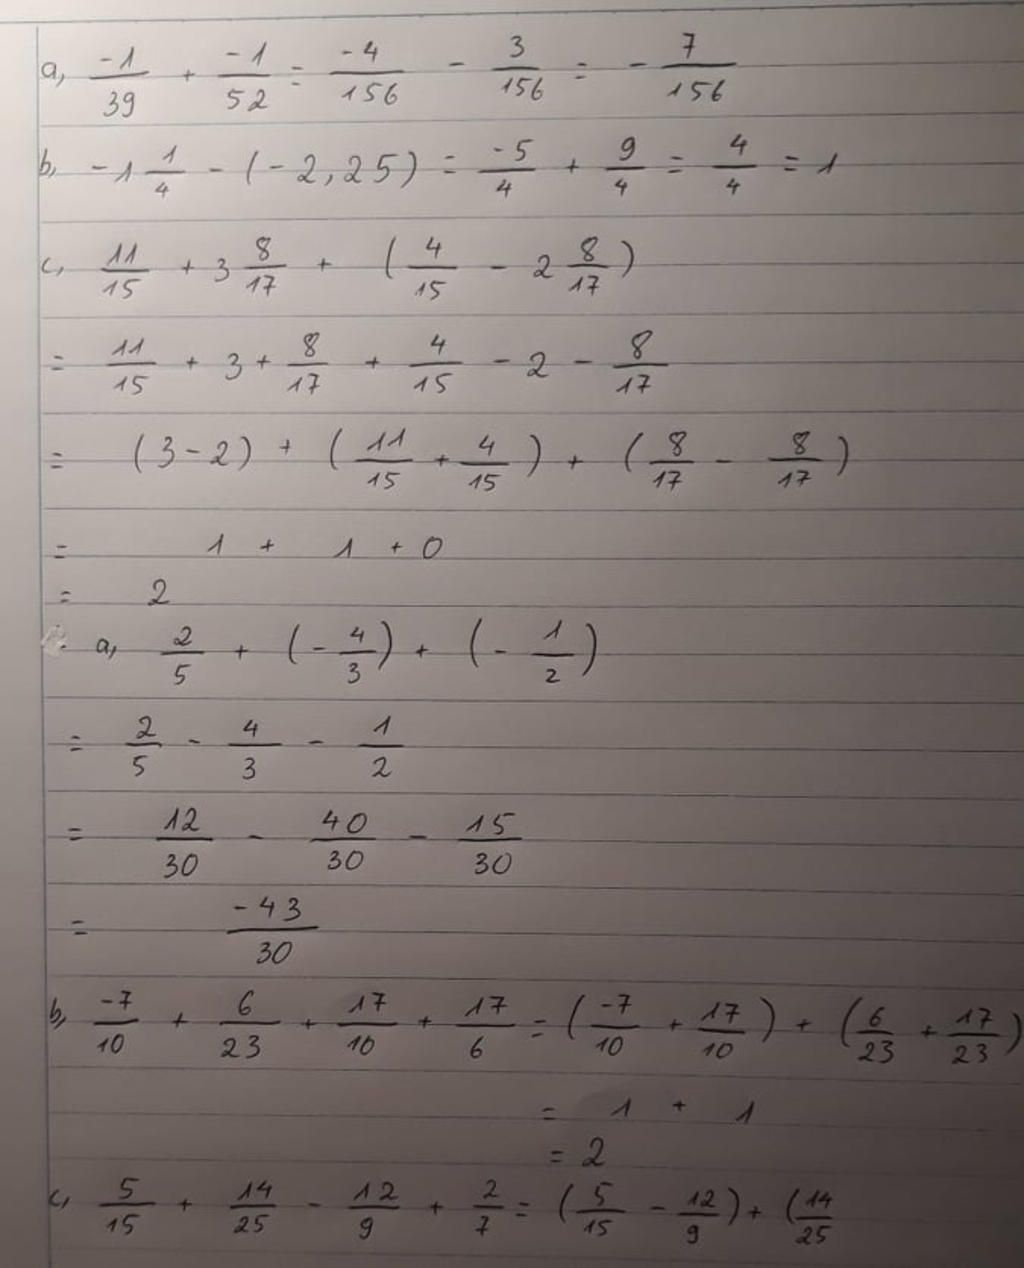 a, -1/39 + -1/52 = -4/156 - 3/156 = - 7/156
b, -1 1/4 - (-2,25) = -5/4 + 9/4 = 4/4 = 1
c, 11/15 + 3 8/17 + (4/15 - 2 8/17)
= 11/15 + 3 + 8/17 + 4/15 - 2 - 8/17
= (3 - 2) + (11/15 + 4/15) + (8/17 - 8/17)
= 1 + 1 + 0
= 2
a, 2/5 + (- 4/3) + (- 1/2)
= 2/5 - 4/3 - 1/2
= 12/30 - 40/30 - 15/30
= -43/30
b, -7/10 + 6/23 + 17/10 + 17/6 = (-7/10 + 17/10) + (6/23 + 17/23)
= 1 + 1
= 2
c, 5/15 + 14/25 - 12/9 + 2/7 = (5/15 - 12/9) + (14/25